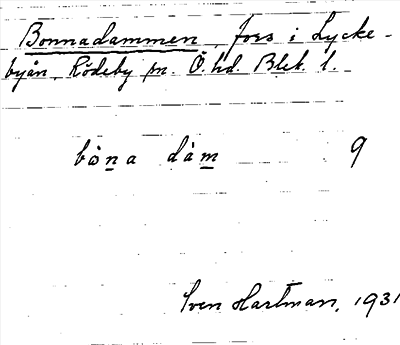 Bonnadammen, fors i Lycke-
byån, Rödeby sn. Ö. hd. Blek. l.
bòna dàm 9
Sven Hartman, 1931